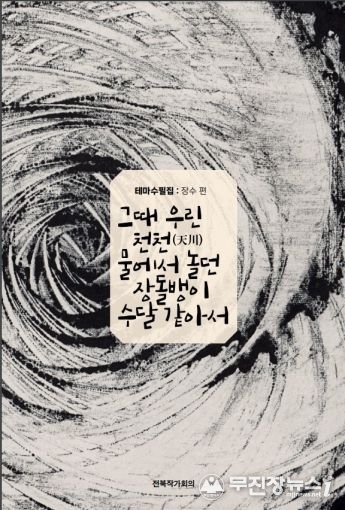 테마수필집 : 장수 편
그때 우린
천천(天川)
물에서 놀던
장돌뱅이
수달 같아서
전북작가회의
무진장뉴스